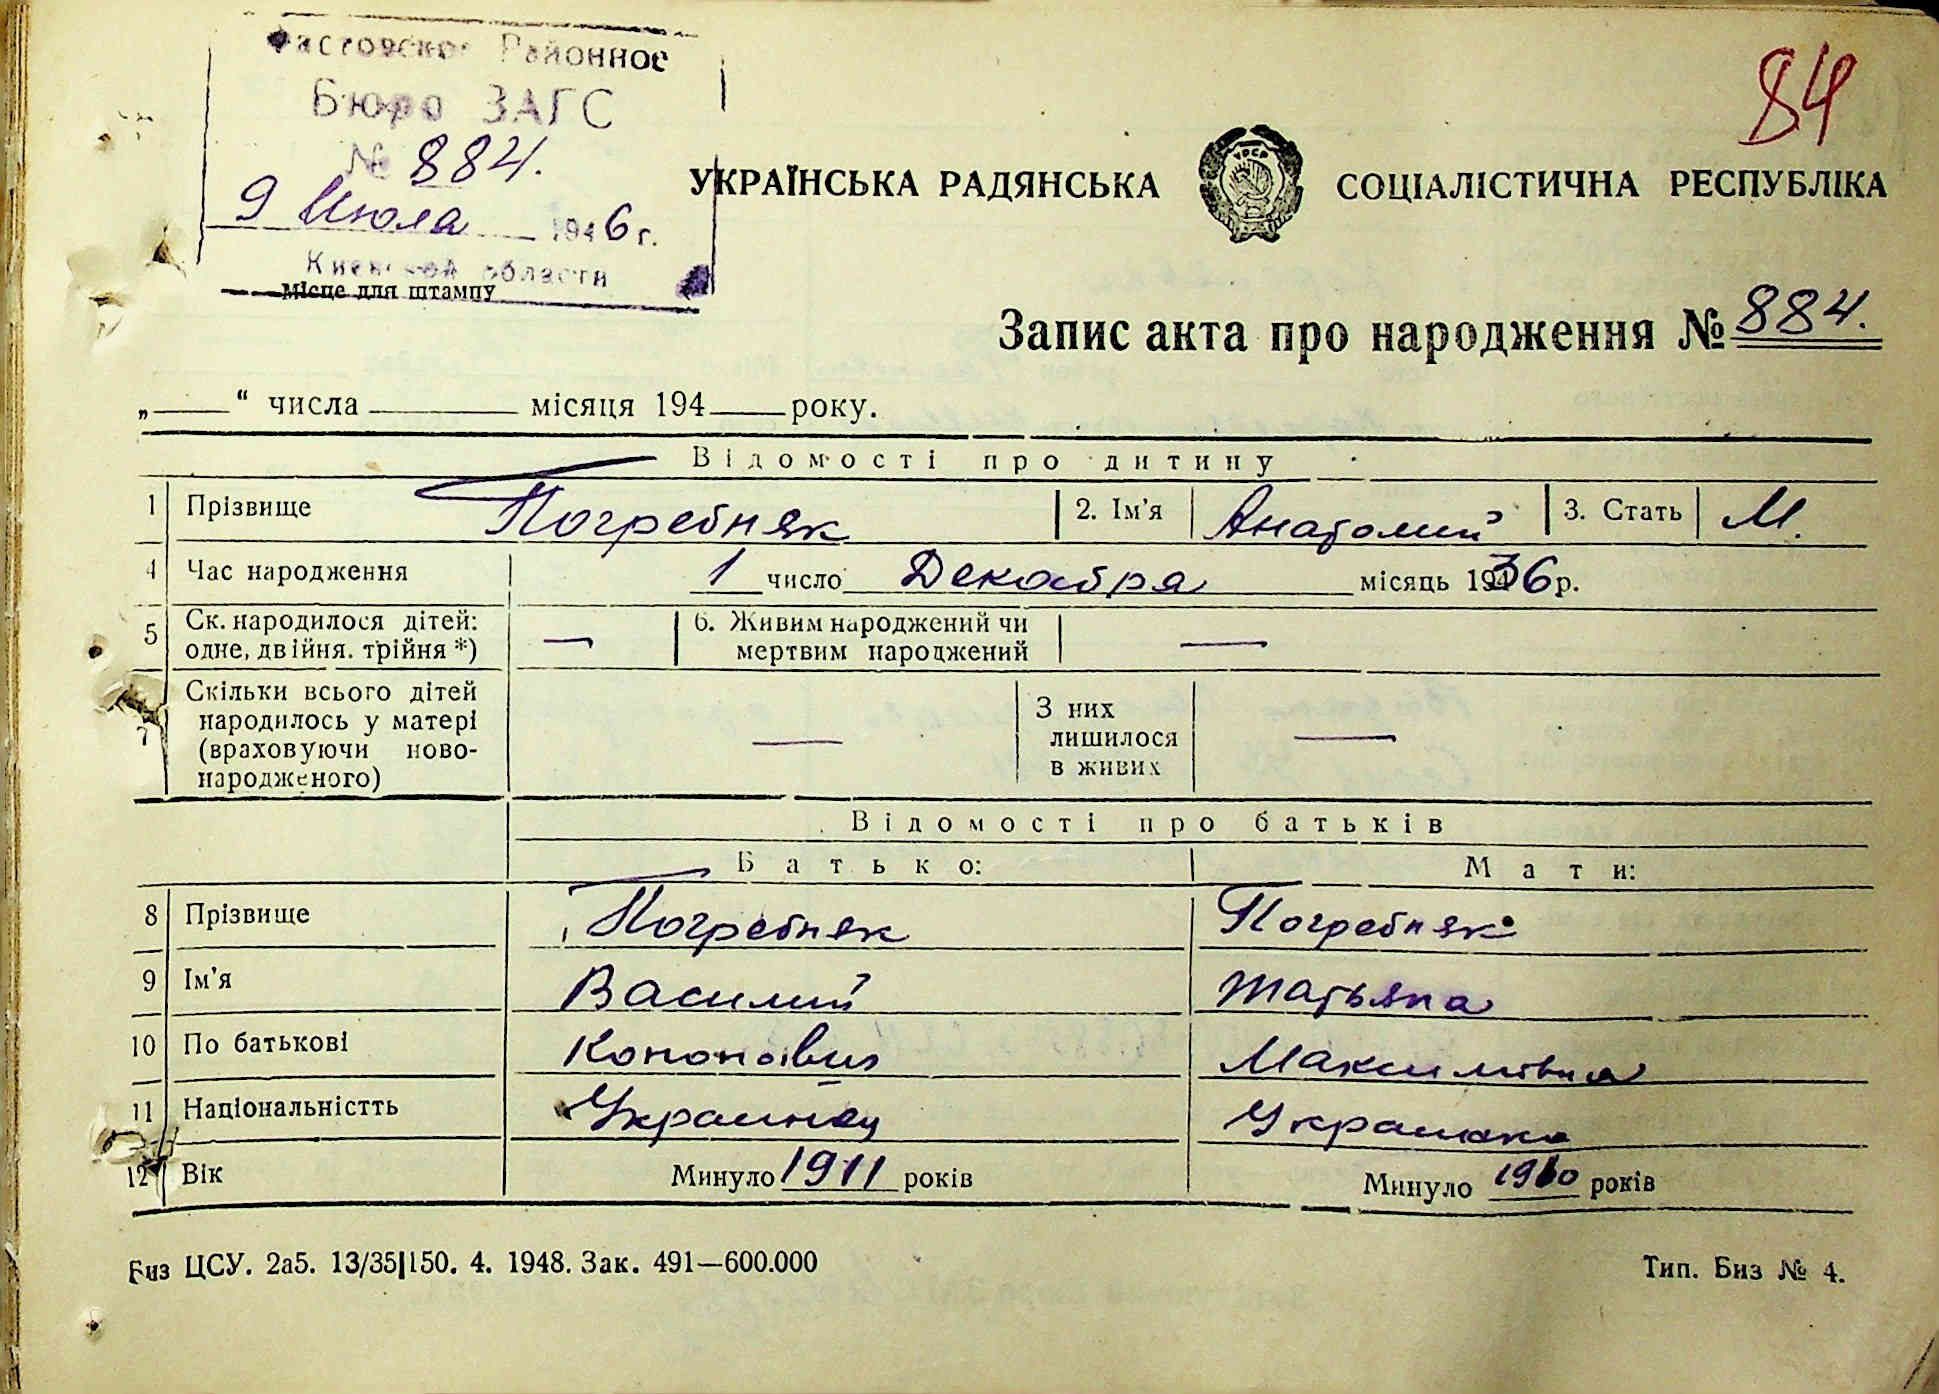 Фастовское Районное
Бюро ЗАГС
№ 884.
9 Июля 1946 г.
Киевской области
місце для штампу
84
УКРАЇНСЬКА РАДЯНСЬКА СОЦІАЛІСТИЧНА РЕСПУБЛІКА
УРСР
Запис акта про народження № 884.
„ “ числа місяця 194 року.
Відомості про дитину
1 Прізвище Погребняк 2. Ім'я Анатолий 3. Стать М.
4 Час народження 1 число Декабря місяць 1936 р.
5 Ск. народилося дітей: одне, двійня. трійня *) — 6. Живим народжений чи мертвим народжений —
7 Скільки всього дітей народилось у матері (враховуючи ново-народженого) — З них лишилося в живих —
Відомості про батьків
Батько: Мати:
8 Прізвище Погребняк Погребняк
9 Ім'я Василий Татьяна
10 По батькові Кононович Максимовна
11 Національністть Украинец Украинка
12 Вік Минуло 1911 років Минуло 1910 років
Биз ЦСУ. 2а5. 13/35|150. 4. 1948. Зак. 491—600.000 Тип. Биз № 4.